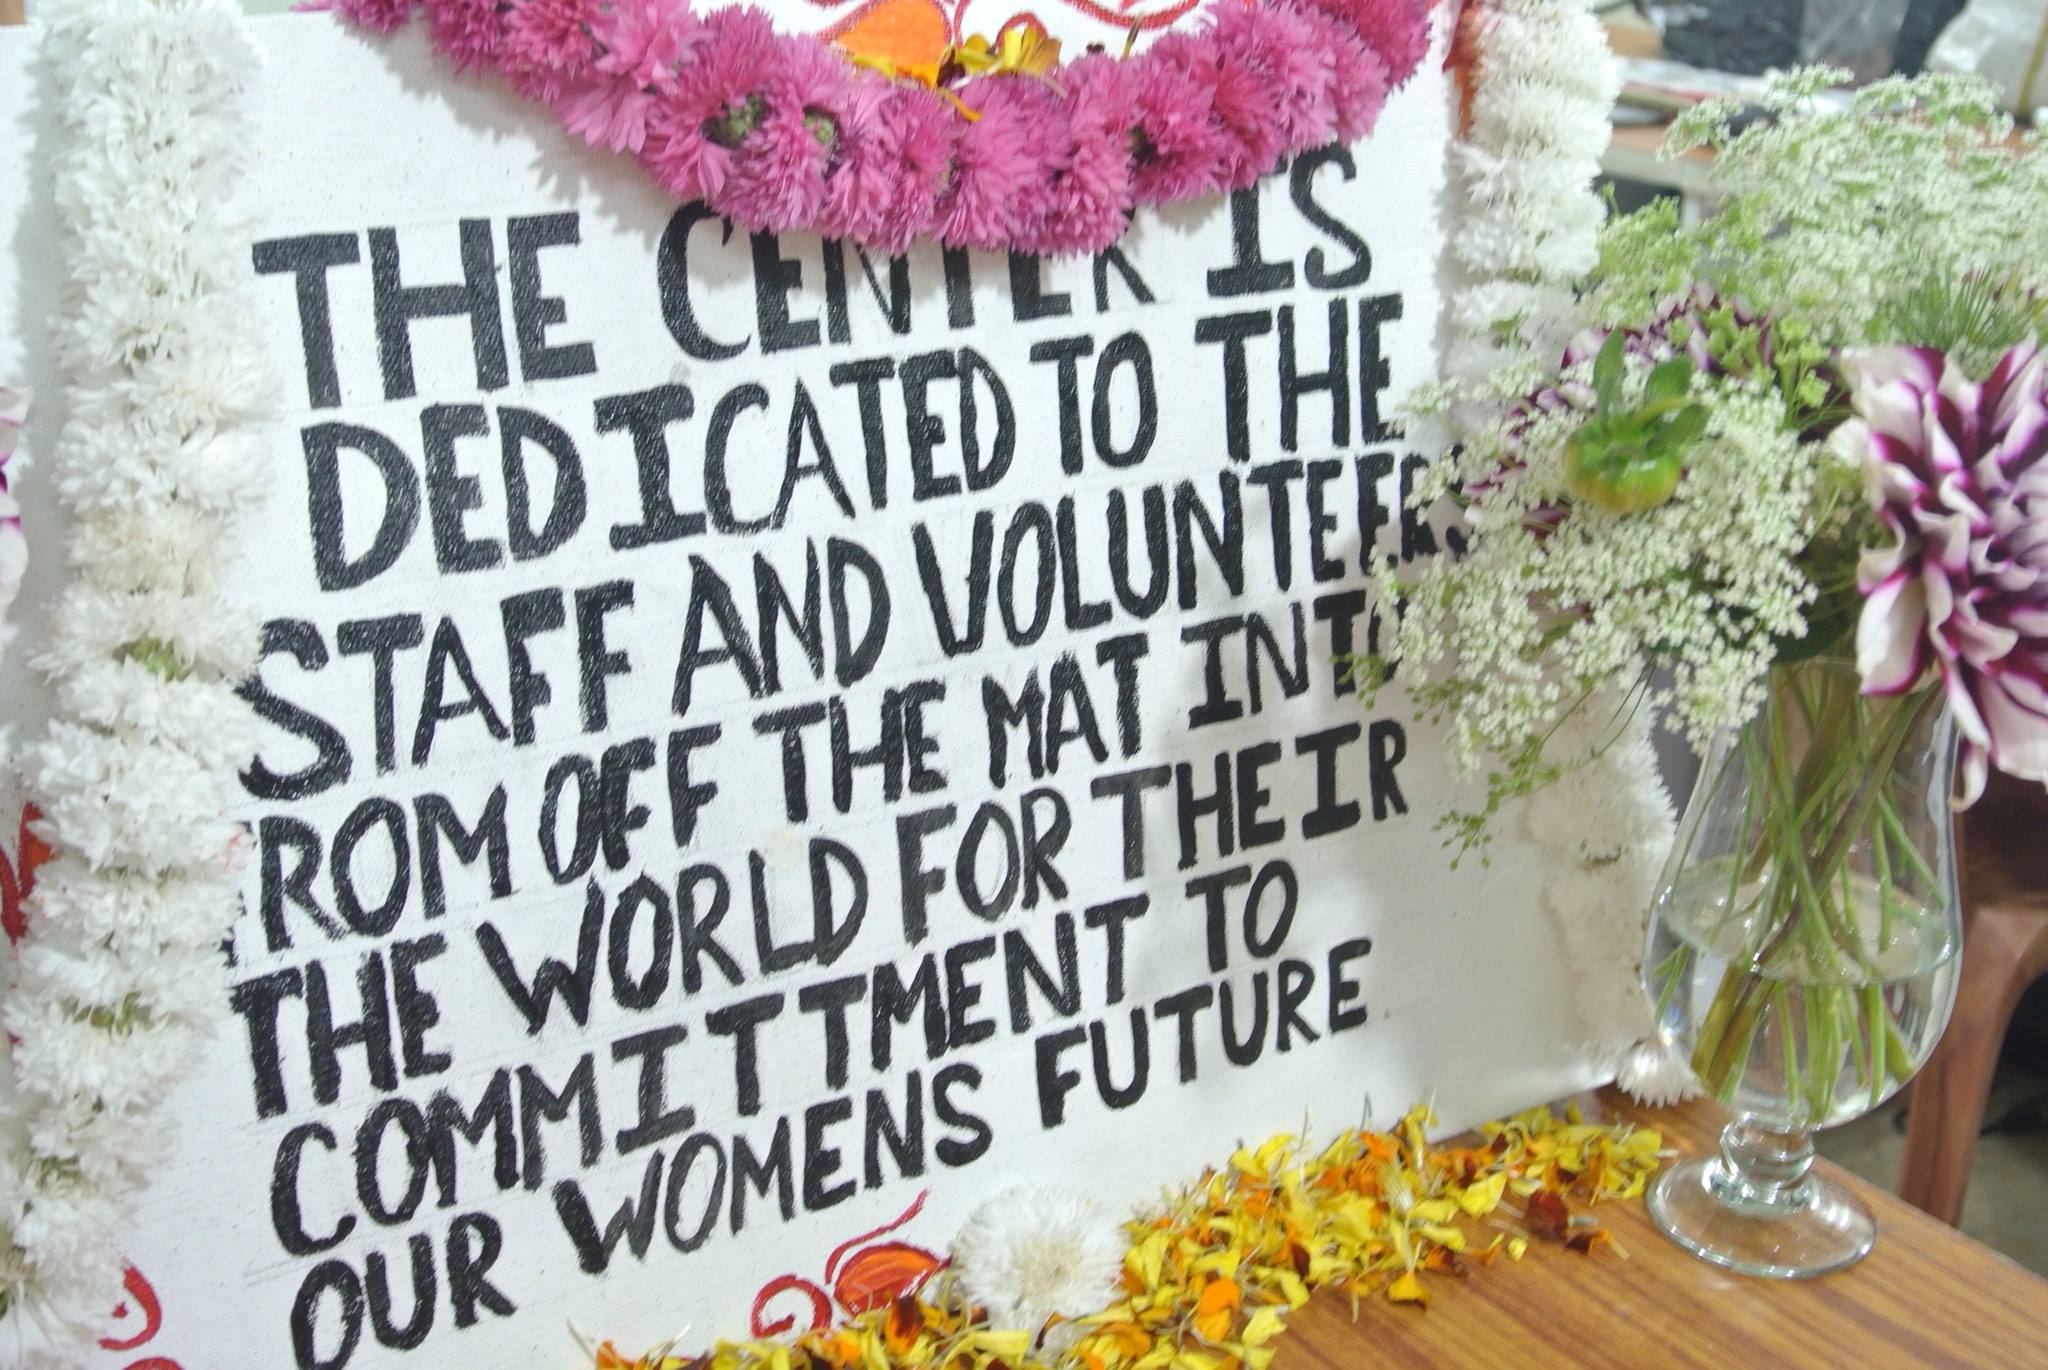 THE CENTER IS
DEDICATED TO THE
STAFF AND VOLUNTEERS
FROM OFF THE MAT INTO
THE WORLD FOR THEIR
COMMITTMENT TO
OUR WOMENS FUTURE